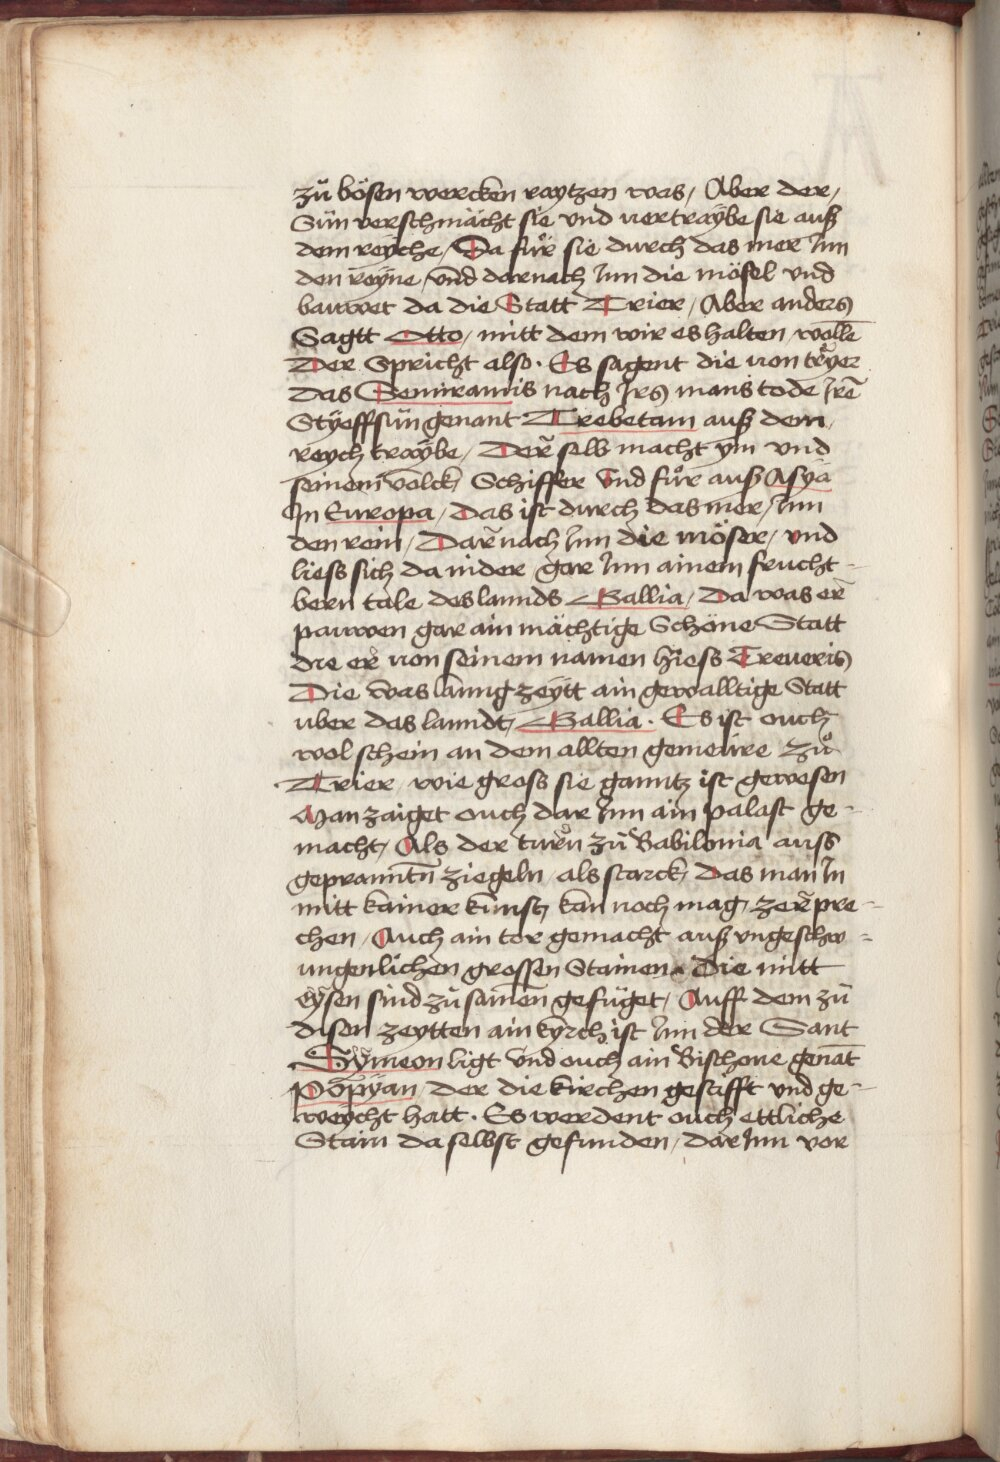 zů bösen wercken raytzen was / Aber der /
Sün verschmächt sie vnd vertraÿbe sie auß
dem reyche / Da fůr sie durch das mer Jnn
den reyne / vnd darnach Jnn die mösel vnd
bauwet da die Statt Trier / Aber anders
Sagtt Otto / mitt dem wir es halten wollē
Der Spricht also · Es sagent die von trÿer
das Semiramis nach Jrs mans tode Jrē
Styeffsün genant Trebetam auß dem /
reych traÿbe / Der selb macht ym vnd
seinem volck Schiffer vnd fůr auß Asya
Jn Europa / Das ist durch das mer / Jnn
den rein / Darnach Jnn die möser / vnd
liess sich da nider gar Jnn ainem frucht-
bern tale des lannds Gallia / Da was er
pauwen gar ain mächtige Schöne Statt
die er von seinem namen hiess Treueris
Die was lanng zeytt ain gewalltige Statt
uber das lanndt / Gallia · Es ist ouch
wol schein an dem allten gemeüre zů
Trier wie gross sie ganntz ist gewesen
Man zaiget ouch dar Jnn ain palast ge-
macht / Als der turn zů Babilonia auss
geprannttn ziegeln als starck / Das man Jn
mitt kainer kunst kan noch mag zerpre-
chen / Auch ain tor gemacht auß vngeschw=
ungenlichen grossen Stainen Die mitt
eÿsen sind zůsamen gefüget / Auff dem zů
disen zeytten ain kyrch ist Jnn der Sant
Sÿmeon ligt vnd ouch ain Bischoue genāt
Popÿan / der die kirchen gestifft vnd ge-
weycht hatt · Es werdent ouch ettliche
Stain da selbst gefunden / dar Jnn vor